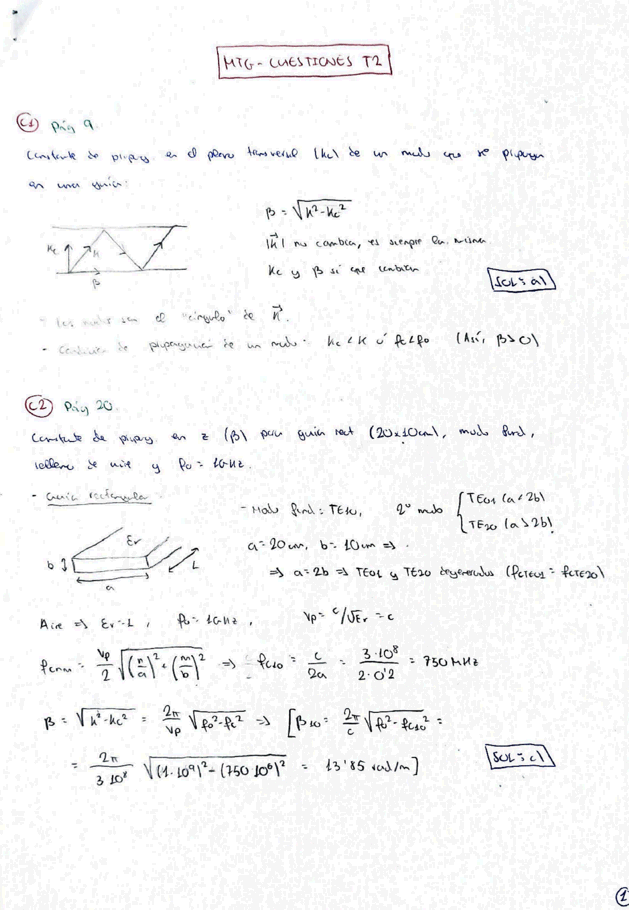 MTG - CUESTIONES T2
C1 Pág 9
Constante de propag en el plano transversal (kc) de un modo que se propaga
en una guía:
β = √(k²-kc²)
|k⃗| no cambia, es siempre la misma
kc y β sí que cambian
SOL: a)
kc k
β
- Los modos son el "ángulo" de k⃗.
- Condición de propagación de un modo: kc < k ó fc < fo (Así, β > 0)
C2 Pág 20
Constante de propag en z (β) para guía rect (20x10cm), modo fund,
relleno de aire y fo = 1GHz.
- Guía rectangular
- Modo fund: TE10, 2º modo { TE01 (a < 2b)
TE20 (a > 2b)
εr
b a L
a = 20cm, b = 10cm =>
=> a = 2b => TE01 y TE20 degenerados (fcTE01 = fcTE20)
Aire => εr = 1, fo = 1GHz, vp = c/√εr = c
fcnm = vp/2 √((n/a)² + (m/b)²) => fc10 = c/2a = 3·10⁸/2·0'2 = 750 MHz
β = √(k²-kc²) = 2π/vp √(fo²-fc²) => [β10 = 2π/c √(fo²-fc10²) =
= 2π/3·10⁸ √((1·10⁹)² - (750·10⁶)²) = 13'85 rad/m]
SOL: c)
1